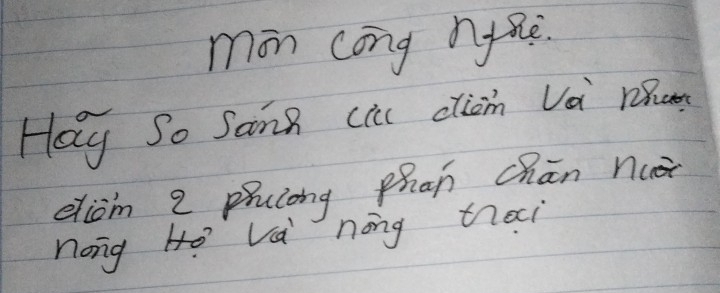 Môn công nghệ.
Hãy so sánh ưu điểm và nhược
điểm 2 phương pháp chăn nuôi
nông Hộ và nông trại